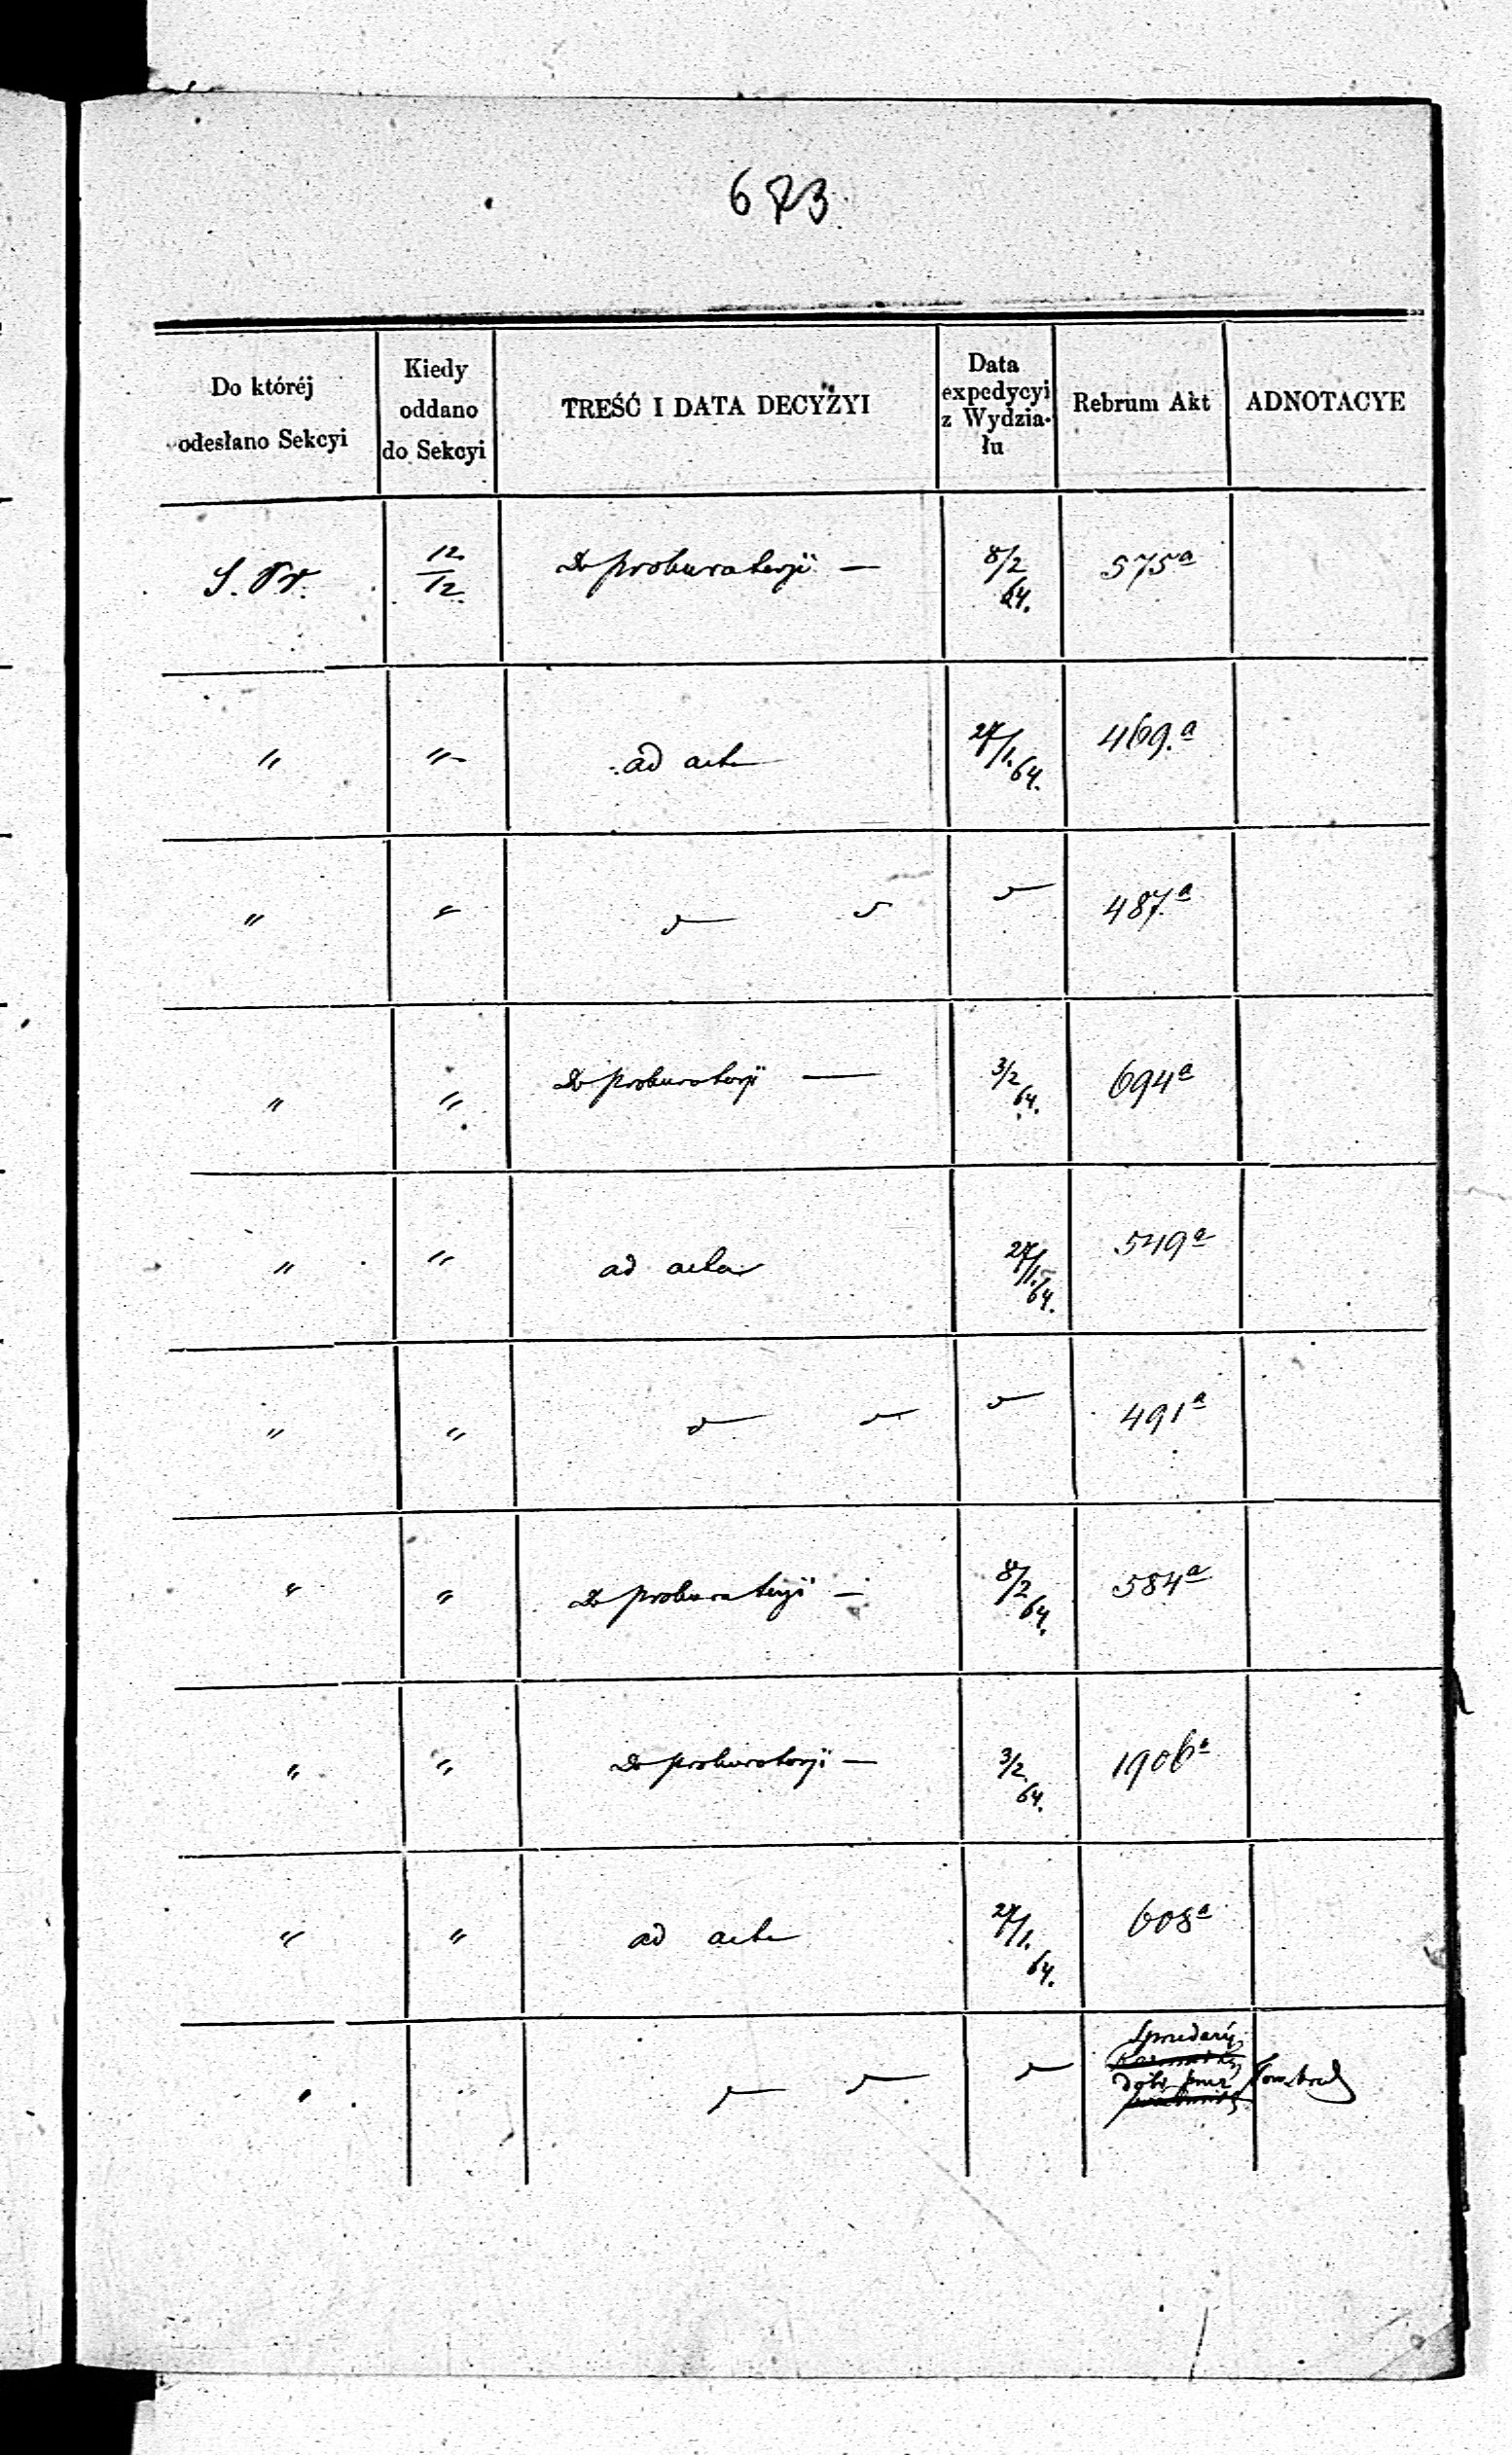 673
Do któréj odesłano Sekcyi | Kiedy oddano do Sekcyi | TREŚĆ I DATA DECYZYI | Data expedycyi z Wydziału | Rebrum Akt | ADNOTACYE
S. Pr. | 12/12 | Do prokuratoryi — | 8/2 64. | 575a
" | " | ad acta | 27/1. 64. | 469.a
" | " | " " | " | 487a
" | " | Do prokuratoryi — | 3/2 64. | 694a
" | " | ad acta | 27/1. 64. | 549a
" | " | " " | " | 491a
" | " | Do prokuratoryi — | 8/2 64. | 584a
" | " | Do prokuratoryi — | 3/2 64. | 1906a
" | " | ad acta | 27/1. 64. | 608a
" | " " | " | dóbr przez